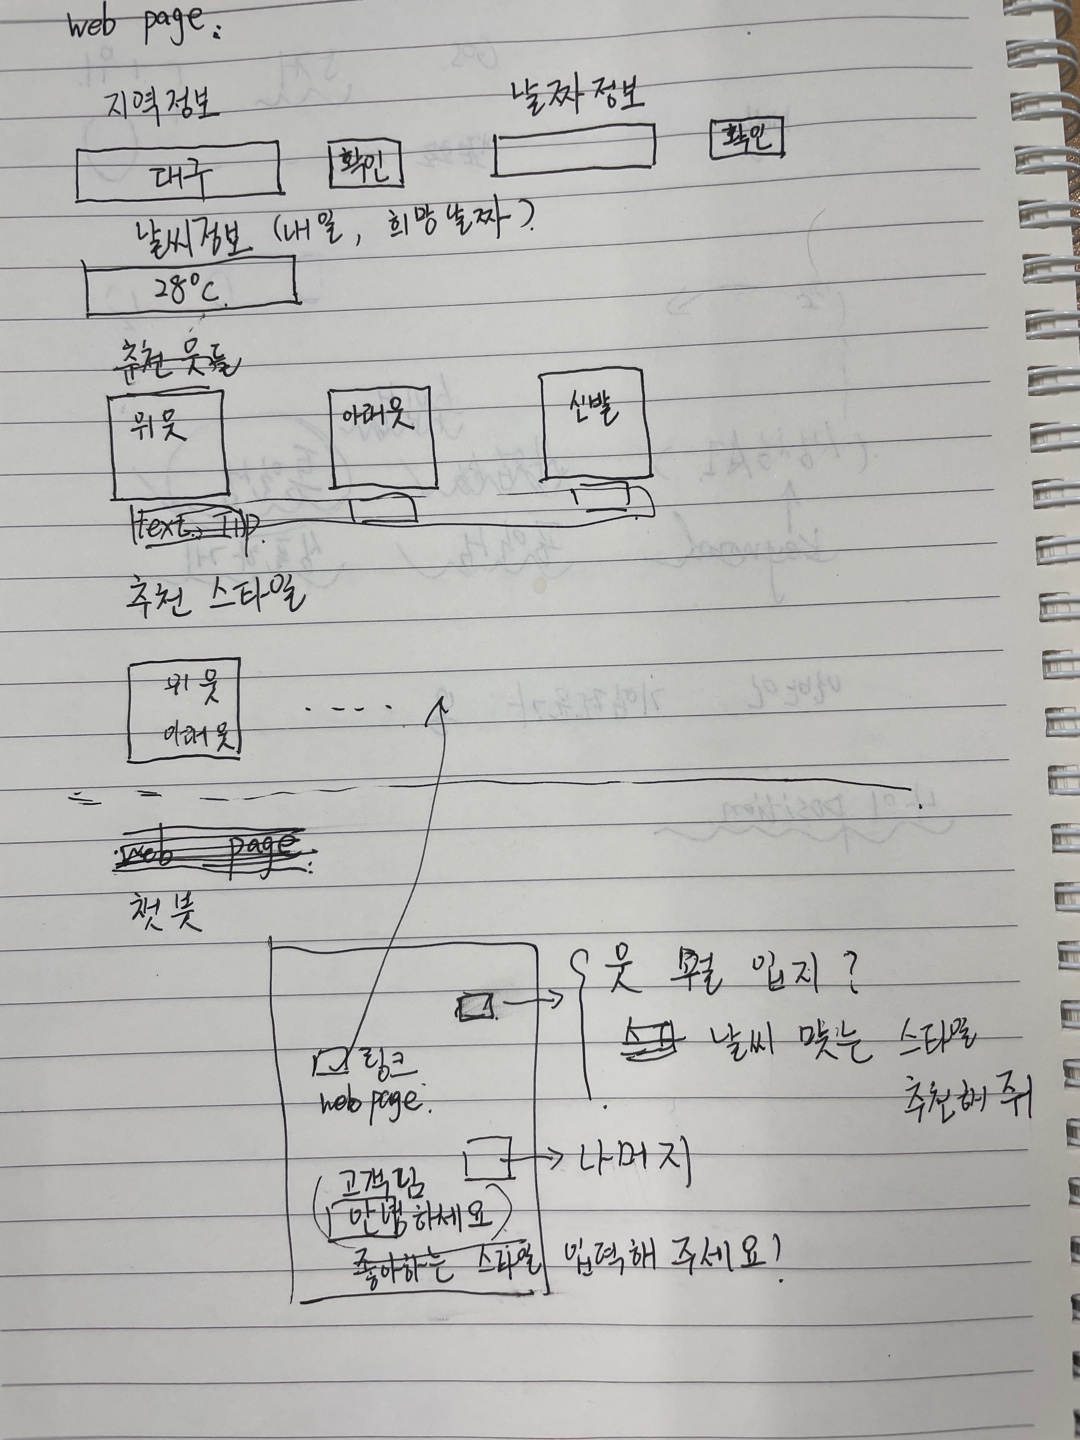 web page:
지역정보
날짜정보
대구
확인
확인
날씨정보 (내일, 희망날짜)
28°C
추천 옷들
위옷
아래옷
신발
text
추천 스타일
위 옷
아래옷
....
web page:
챗봇
옷 뭘 입지?
날씨 맞는 스타일
추천해 줘
링크
web page.
나머지
고객님
안녕하세요
좋아하는 스타일 입력해 주세요!